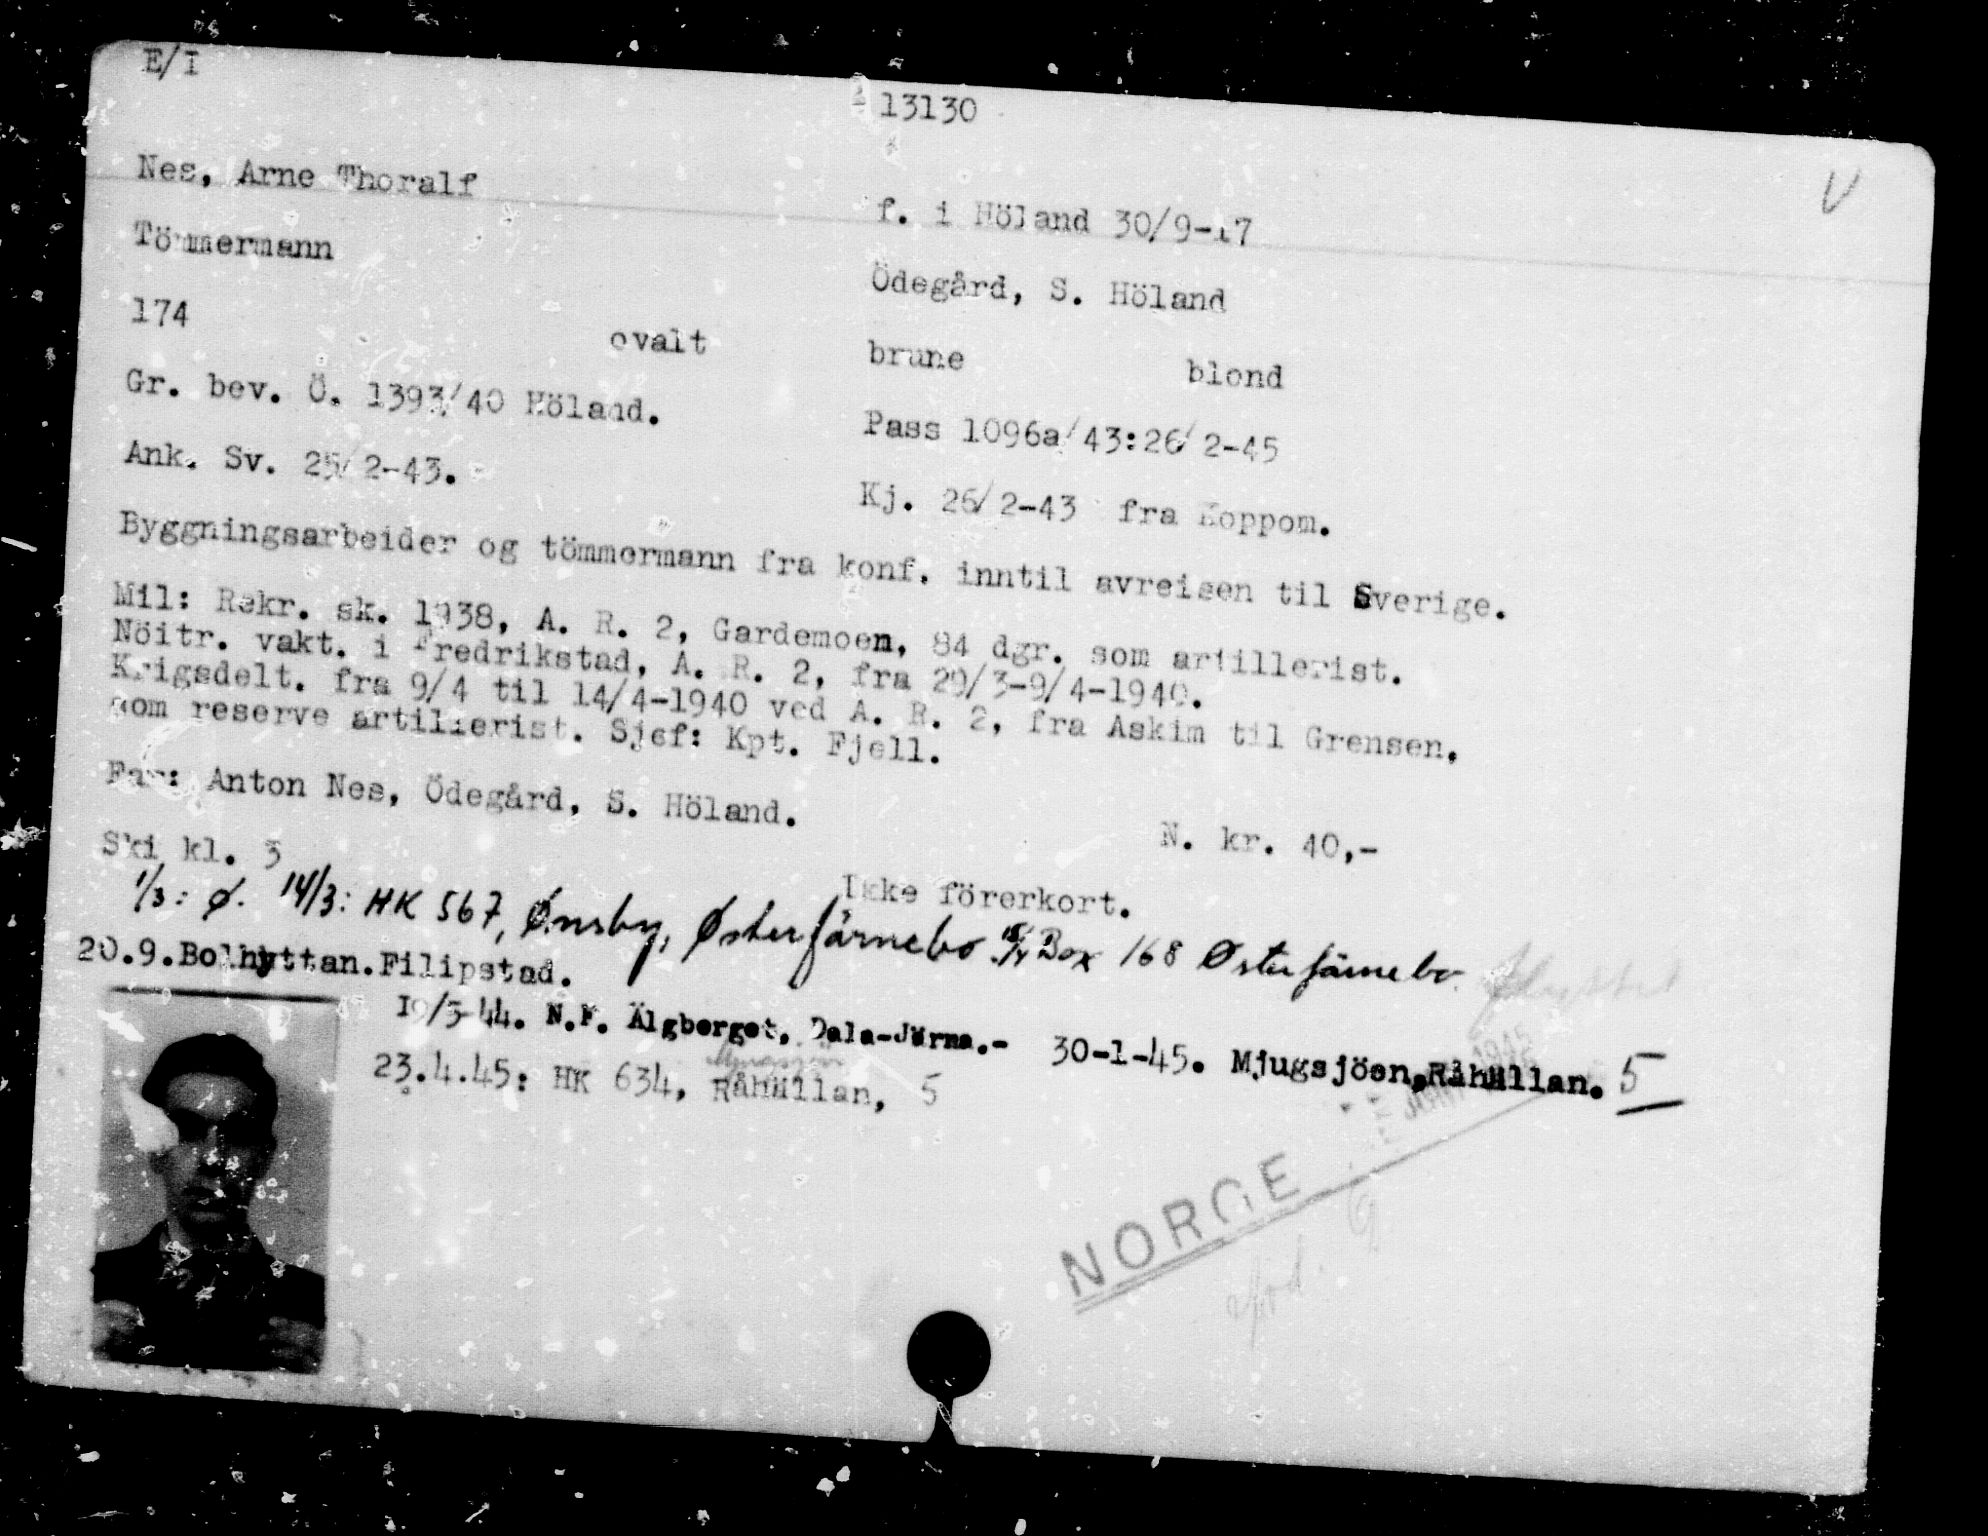 E/I
13130
Nes, Arne Thoralf
f. i Höland 30/9-17
V
Tömmermann
Ödegård, S. Höland
174 ovalt brune blond
Gr. bev. Ö. 1393/40 Höland.
Pass 1096a/43:26/2-45
Ank. Sv. 25/2-43.
Kj. 26/2-43 fra Koppom.
Byggningsarbeider og tömmermann fra konf. inntil avreisen til Sverige.
Mil: Rekr. sk. 1938, A. R. 2, Gardemoen, 84 dgr. som artillerist.
Nöitr. vakt. i Fredrikstad, A. R. 2, fra 29/3-9/4-1940.
Krigsdelt. fra 9/4 til 14/4-1940 ved A. R. 2, fra Askim til Grensen,
som reserve artillerist. Sjef: Kpt. Fjell.
Far: Anton Nes, Ödegård, S. Höland.
N. kr. 40,-
Ski kl. 3
Ikke förerkort.
1/3: Ø. 14/3: HK 567, Ønsby, Østerfärnebo. Box 168 Østerfärnebo.
20.9.Bolhyttan.Filipstad.
19/3-44. N.F. Älgberget. Dala-Järna.- 30-1-45. Mjugsjöen,Råhällan. 5
23.4.45: HK 634, Råhällan, 5
1945
NORGE